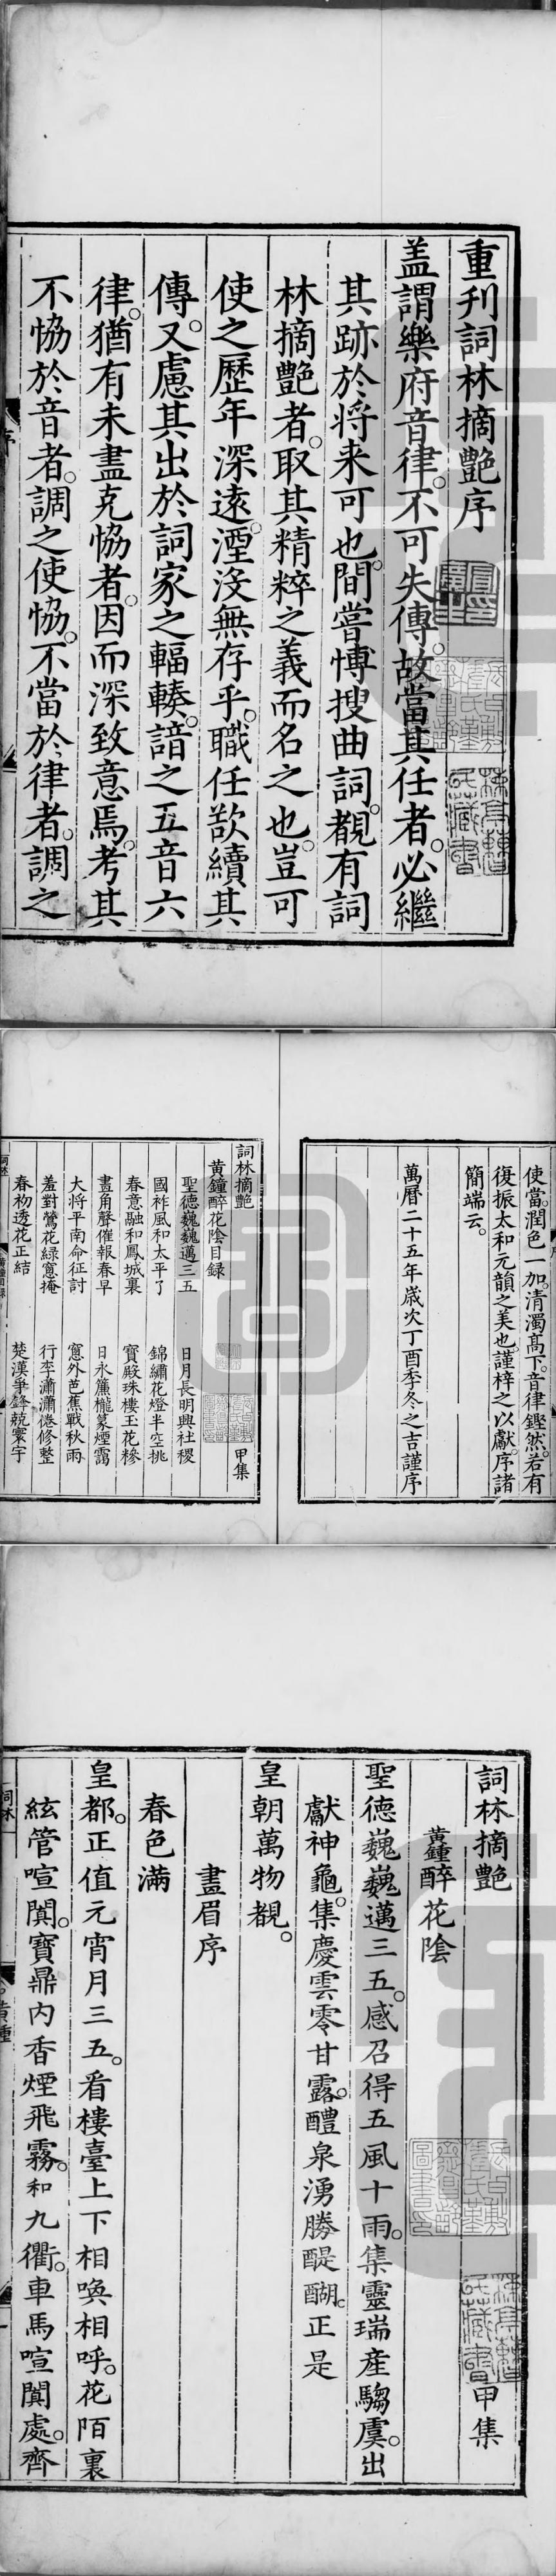 重刋詞林摘艷序
盖謂樂府音律。不可失傳。故當其任者。必繼
其跡於将来可也。間嘗愽搜曲詞。覩有詞
林摘艷者。取其精粹之義而名之也。豈可
使之歷年深遠。湮没無存乎。職任欲續其
傳。又慮其出於詞家之輻輳。諳之五音六
律。猶有未盡克恊者。因而深致意焉。考其
不恊於音者。調之使恊。不當於律者。調之
使當。潤色一加。清濁髙下。音律鏗然。若有
復振太和元韻之美也。謹梓之以獻。序諸
簡端云。
萬曆二十五年歲次丁酉季冬之吉謹序
詞林摘艷
甲集
黄鐘醉花陰目録
聖德巍巍邁三五
日月長明興社稷
國祚風和太平了
錦繡花燈半空挑
春意融和鳳城裏
寶殿珠樓玉花糝
晝角聲催報春早
日永簾櫳篆煙靄
大将平南命征討
窓外芭蕉戰秋雨
羞對鶯花緑窓掩
行李瀟瀟倦修整
春初透花正結
楚漢爭鋒競寰宇
詞林摘艷
甲集
黄鐘醉花陰
聖德巍巍邁三五。感召得五風十雨。集靈瑞產騶虞。出
獻神龜。集慶雲零甘露。醴泉湧勝醍醐。正是
皇朝萬物覩。
畫眉序
春色滿
皇都。正值元宵月三五。看樓臺上下相喚相呼。花陌裏
絃管喧闐。寶鼎内香煙飛霧。和九衢。車馬喧闐處。齊